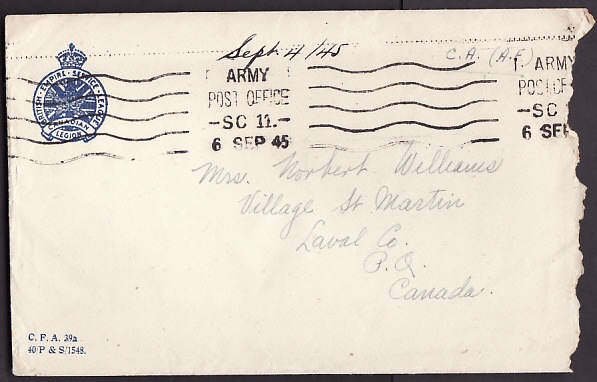 BRITISH · EMPIRE · SERVICE · LEAGUE
CANADIAN
LEGION
Sept 4/45
C.A. (A.F.)
ARMY
POST OFFICE
-SC 11.-
6 SEP 45
ARMY
POST OF
-SC
6 SEP
Mrs. Norbert Williams
Village St Martin
Laval Co.
P.Q.
Canada.
C. F. A. 39a
40/P & S/1548.